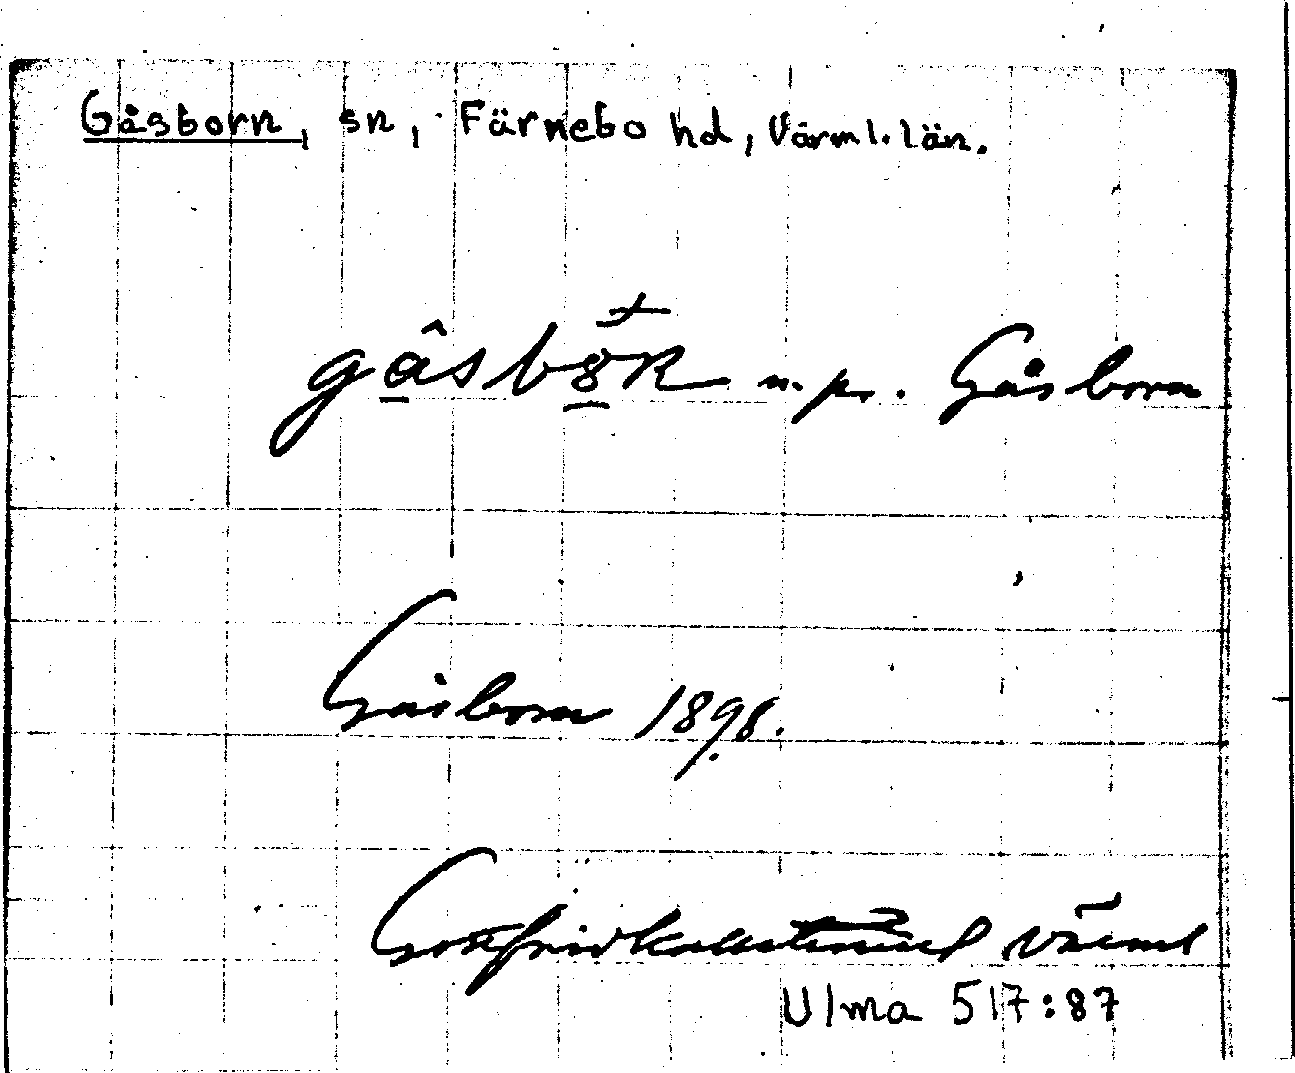 Gåsborn, sn, Färnebo hd, Värml. län.
gåsbon n. pr. Gåsborn
Gåsborn 1898.
Värml
Ulma 517:87